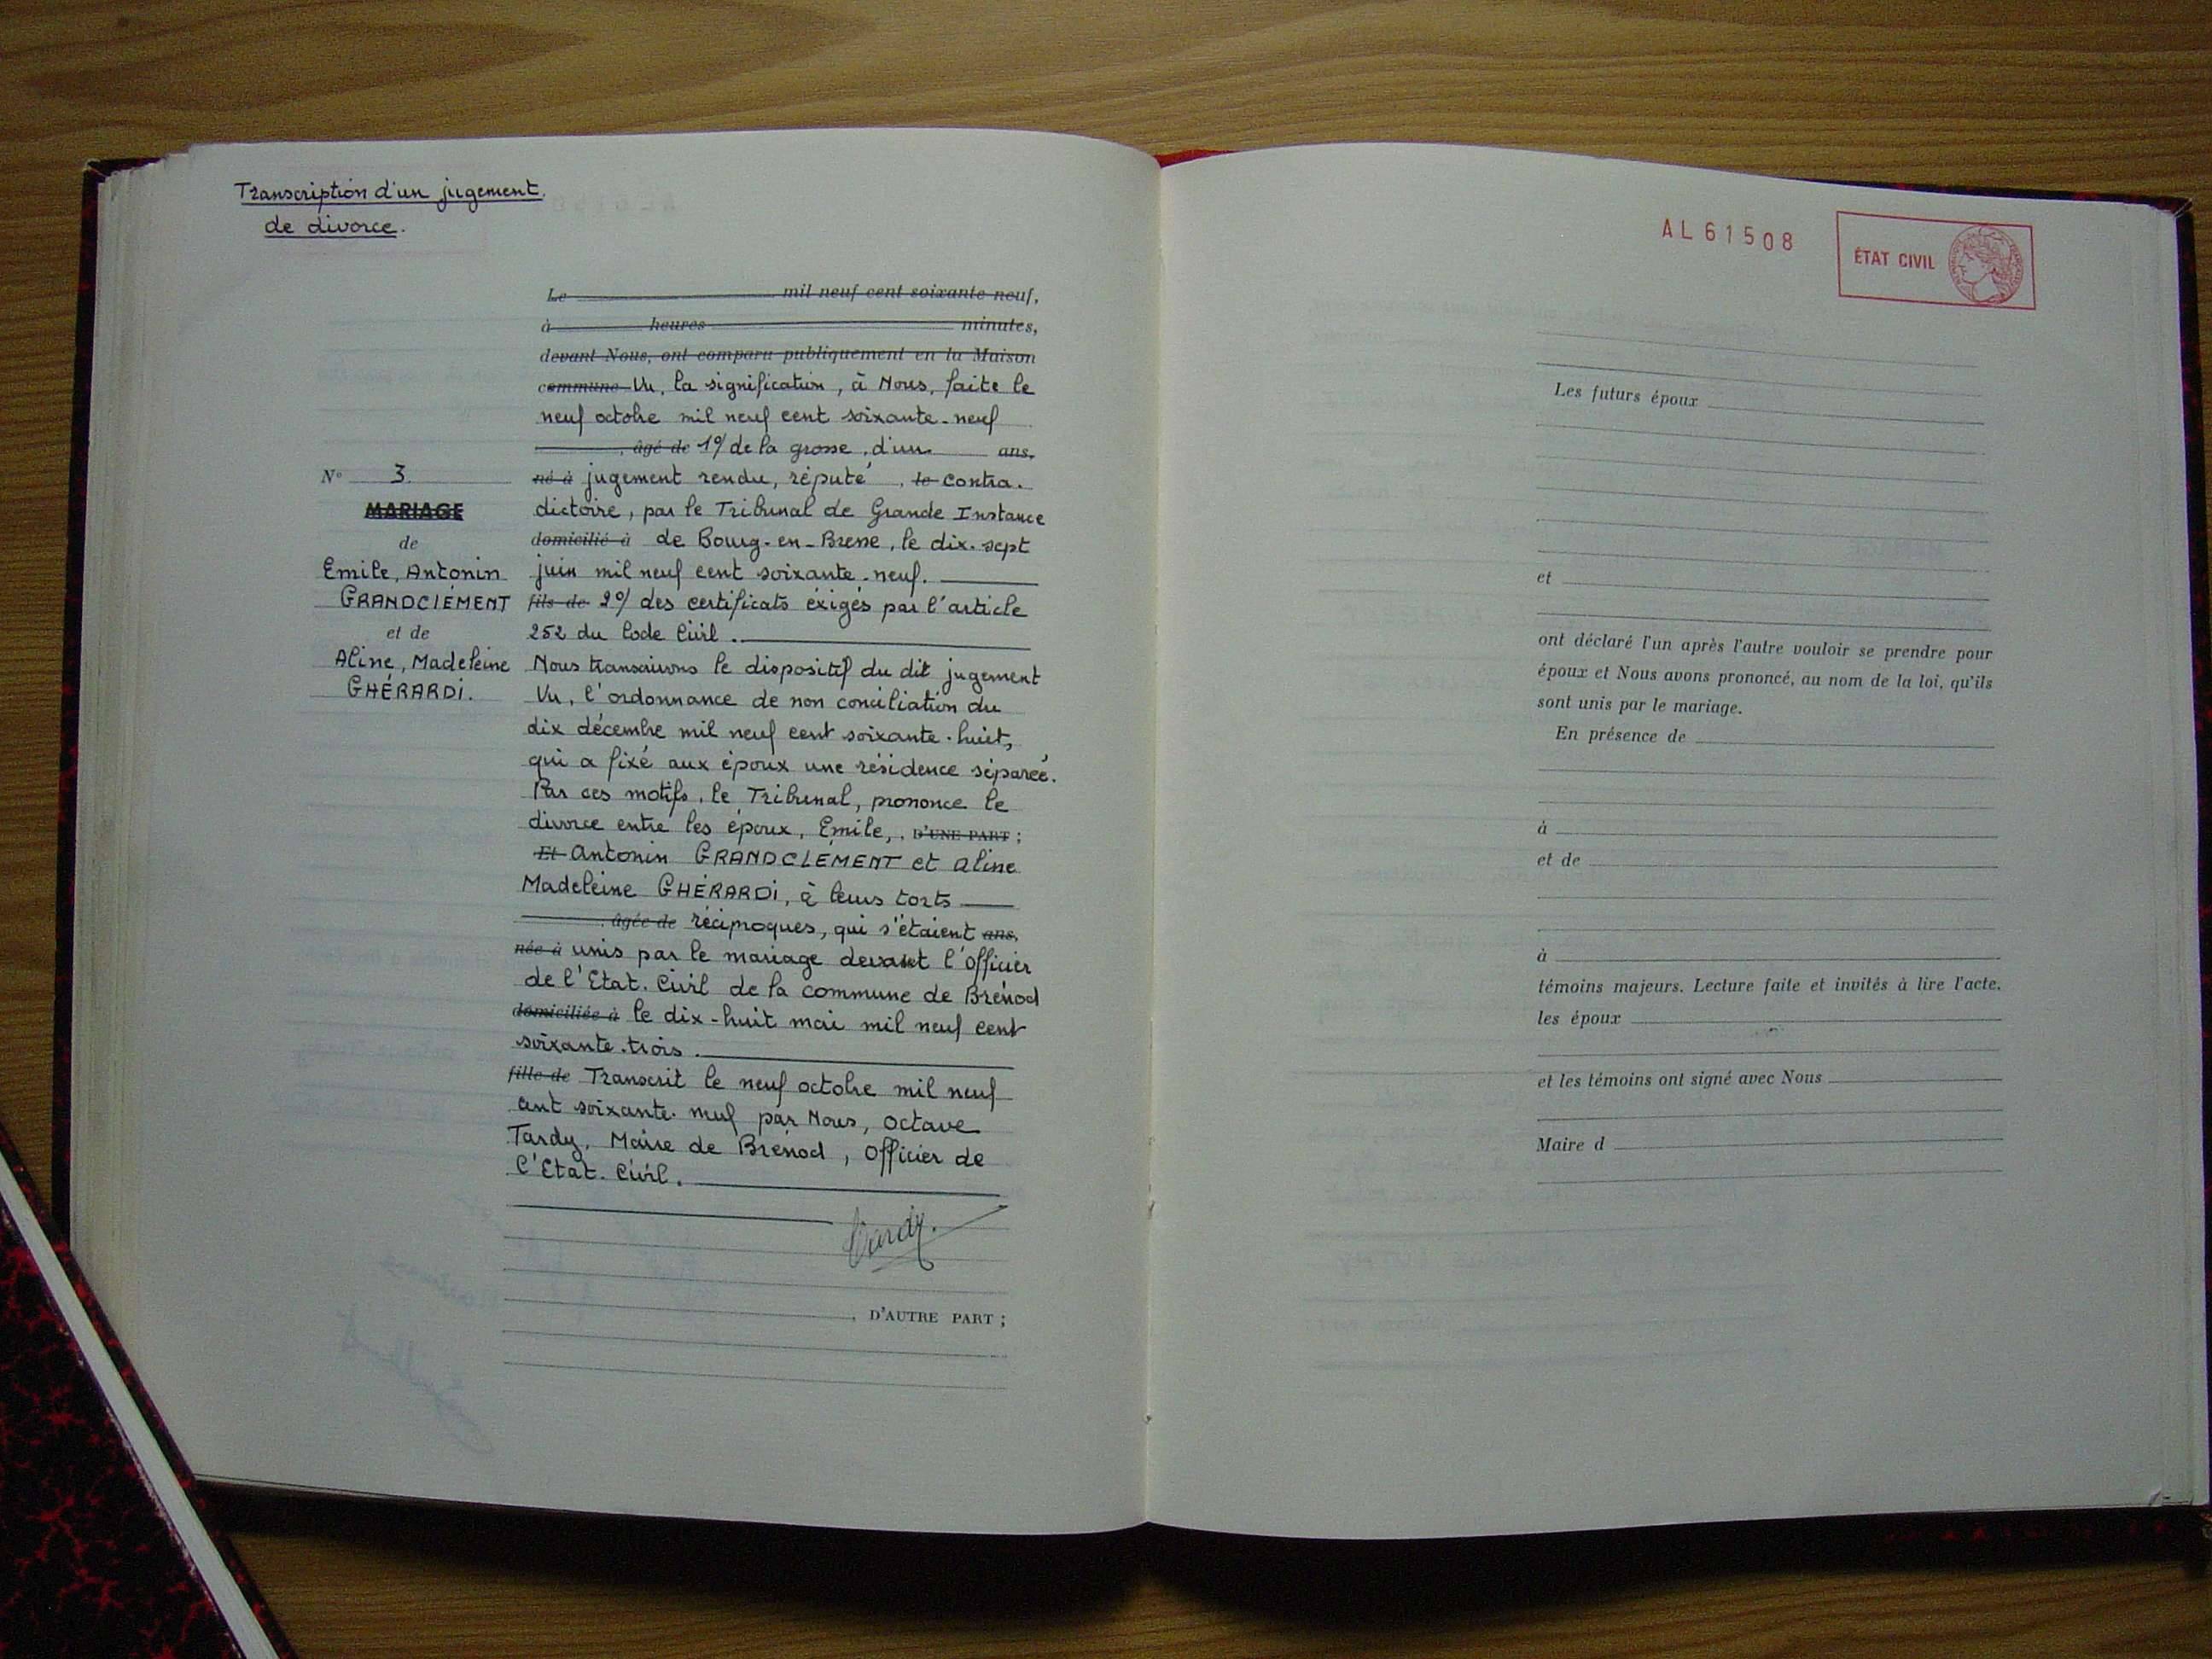 Transcription d'un jugement
de divorce.
Le mil neuf cent soixante neuf,
à heures minutes,
devant Nous, ont comparu publiquement en la Maison
commune Vu, la signification, à Nous, faite le
neuf octobre mil neuf cent soixante-neuf
, âgé de 1°/ de la grosse, d'un ans,
né à jugement rendu, réputé , le contra-
dictoire, par le Tribunal de Grande Instance
domicilié à de Bourg-en-Bresse, le dix-sept
juin mil neuf cent soixante-neuf.
fils de 2°/ des certificats éxigés par l'article
252 du Code Civil.
Nous transcrivons le dispositif du dit jugement
Vu, l'ordonnance de non conciliation du
dix décembre mil neuf cent soixante-huit,
qui a fixé aux époux une résidence séparée.
Par ces motifs, le Tribunal, prononce le
divorce entre les époux, Emile, , D'UNE PART ;
Et Antonin GRANDCLÉMENT et Aline
Madeleine GHÉRARDI, à leurs torts
, âgée de réciproques, qui s'étaient ans,
née à unis par le mariage devant l'Officier
de l'Etat-Civil de la commune de Brénod
domiciliée à le dix-huit mai mil neuf cent
soixante-trois.
fille de Transcrit le neuf octobre mil neuf
cent soixante-neuf par Nous, Octave
Tardy, Maire de Brénod, Officier de
l'Etat-Civil.
Tardy.
, D'AUTRE PART ;
N° 3.
MARIAGE
de
Emile, Antonin
GRANDCLÉMENT
et de
Aline, Madeleine
GHÉRARDI.
AL 61508
ÉTAT CIVIL
Les futurs époux
et
ont déclaré l'un après l'autre vouloir se prendre pour
époux et Nous avons prononcé, au nom de la loi, qu'ils
sont unis par le mariage.
En présence de
à
et de
à
témoins majeurs. Lecture faite et invités à lire l'acte,
les époux
et les témoins ont signé avec Nous
Maire d